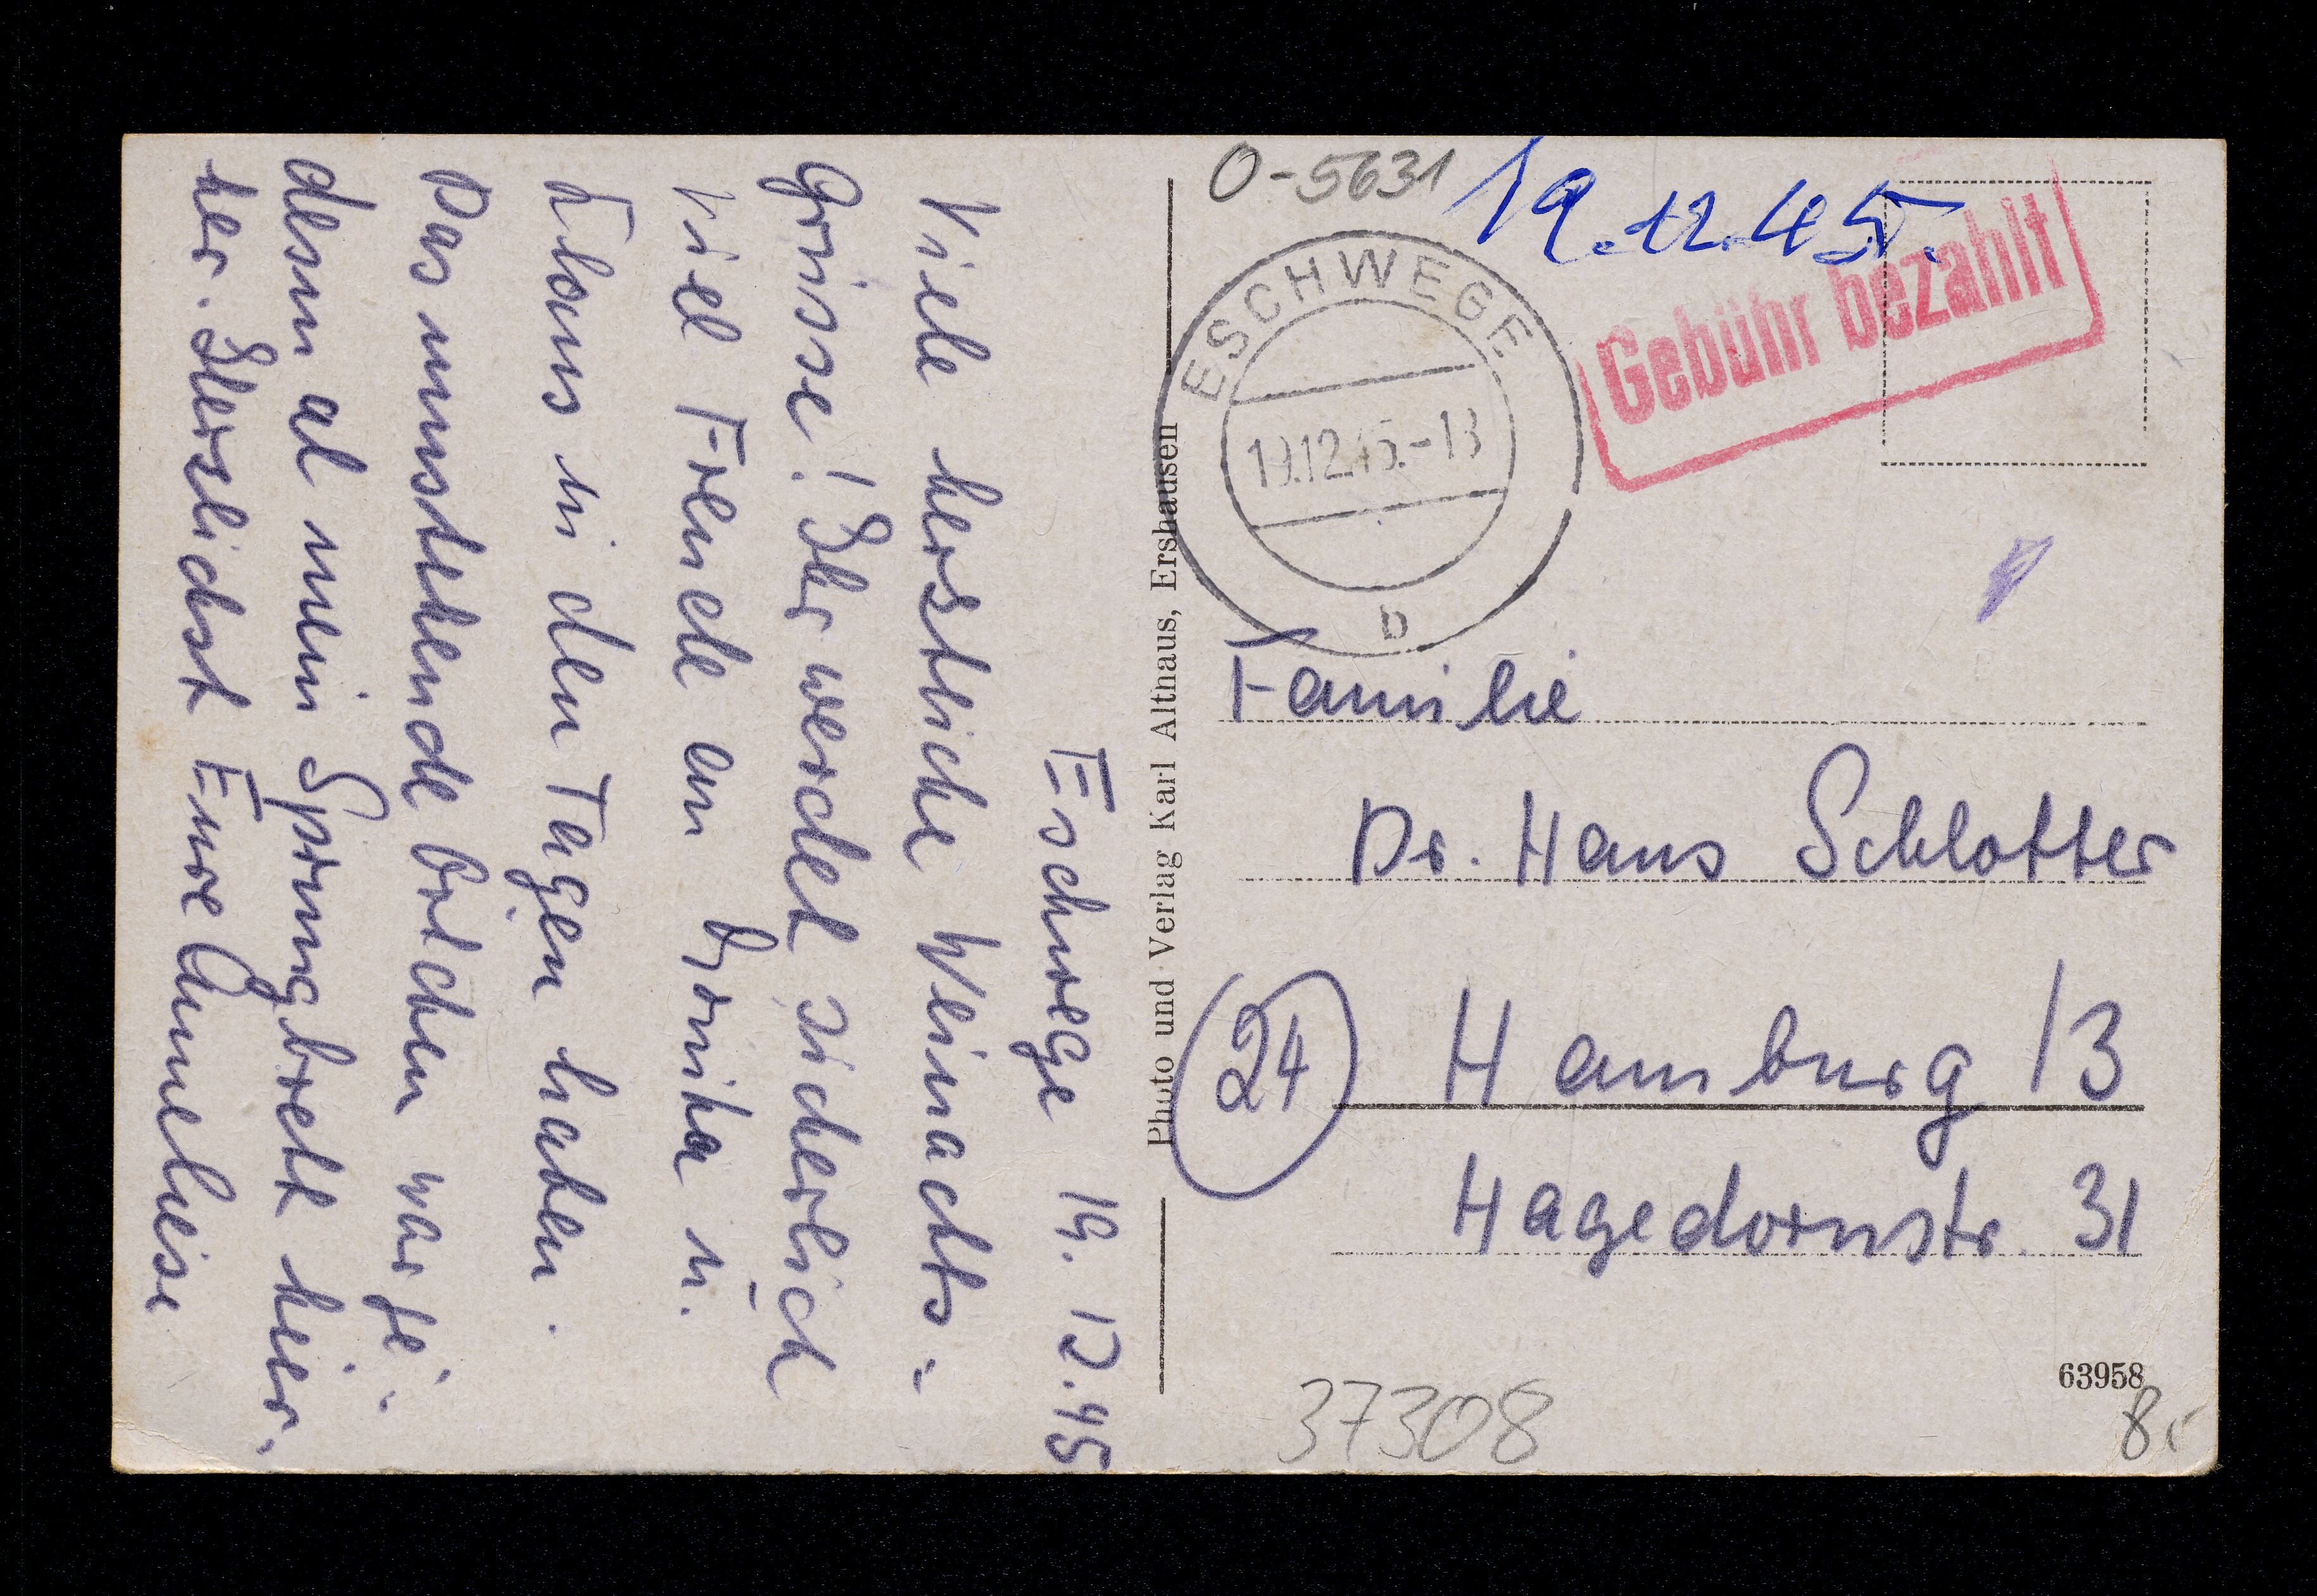 Eschwege 19. 12. 45
Viele herzliche Weinachts=
grüsse! Ihr werdet sicherlich
viel Freude an Monika u.
Klaus in den Tagen haben.
Das umstehende Örtchen war je-
desmal mein Sprungbrett hier-
her. Herzlichst Eure Anneliese
Photo und Verlag Karl Althaus, Ershausen
O-5631
19.12.45.
ESCHWEGE
19.12.45.-13
b
Gebühr bezahlt
Familie
Dr. Hans Schlotter
24
Hamburg 13
Hagedornstr. 31
63958
37308
8,-